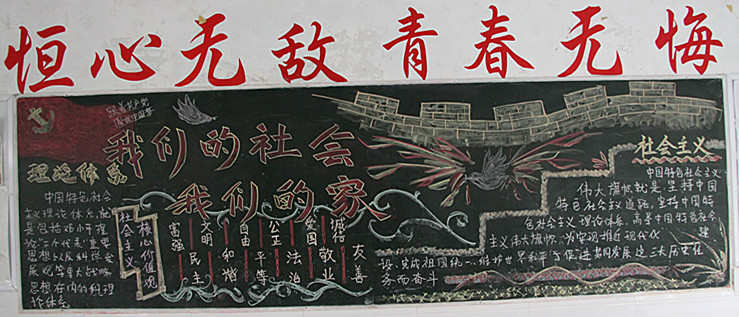 恒心无敌 青春无悔
我们的社会
我们的家
理论体系
中国特色社会
主义理论体系就
是包括邓小平理
论"三个代表"重要
思想以及科学发
展观等重大战略
思想在内的科理
论体系
社会主义
核心价值观
富强
民主
文明
和谐
自由
平等
公正
法治
爱国
敬业
诚信
友善
社会主义
中国特色社会主义
伟大旗帜就是坚持中国
特色社会主义道路,坚持中国特
色社会主义理论体系,高举中国特色社会
主义伟大旗帜,为实现推进现代化建
设、完成祖国统一、维护世界和平了促进共同发展这三大历史任
务而奋斗